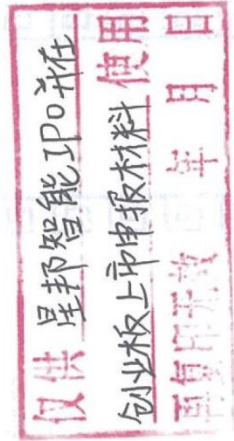 仅供星邦智能IPO并在
创业板上市申报材料使用
再复印无效 年 月 日